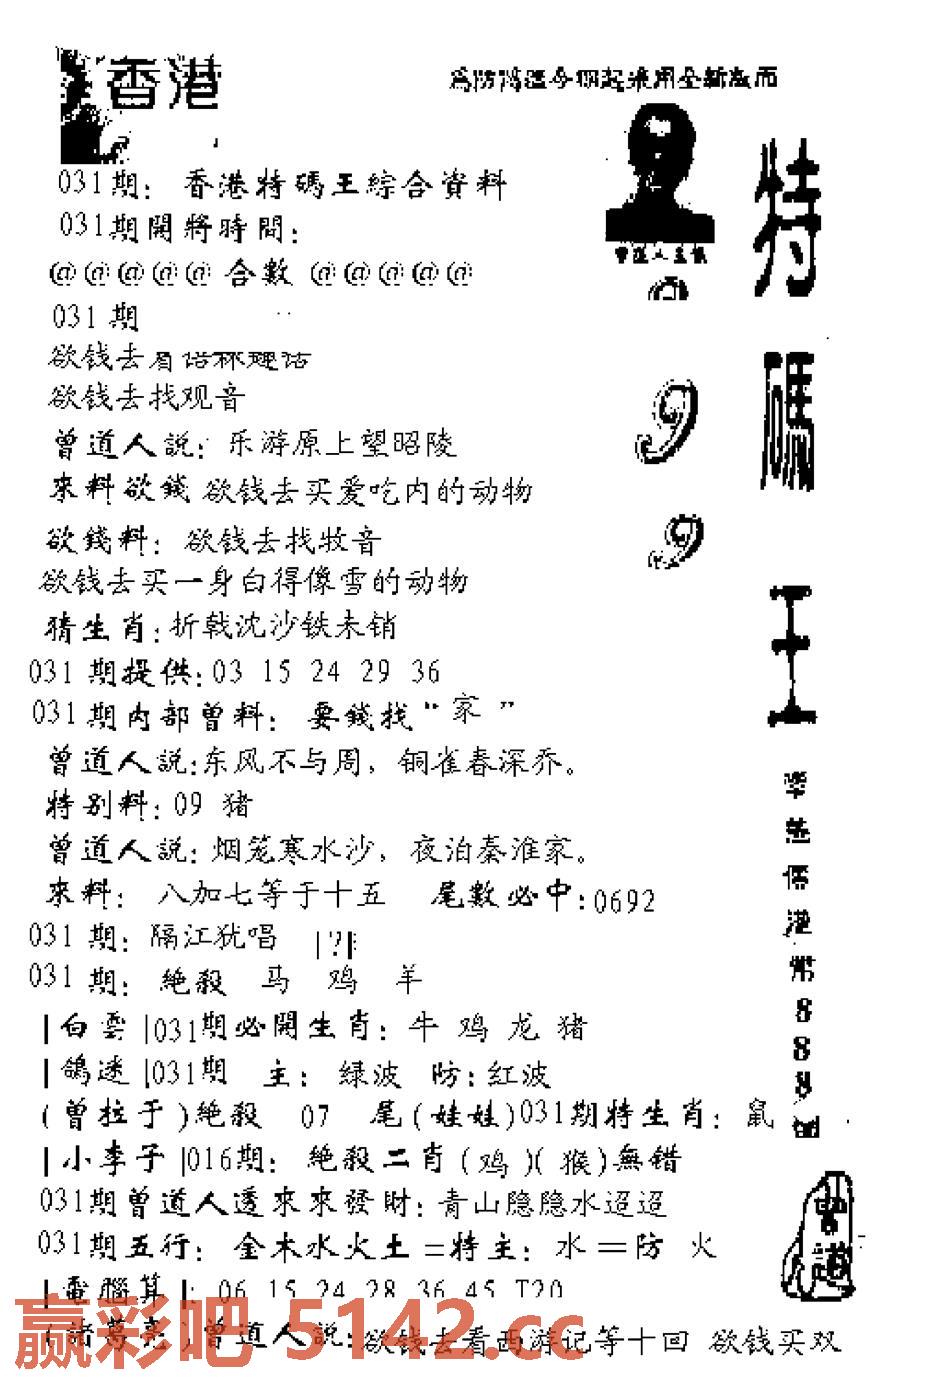 香港
031期：香港特碼王綜合資料
031期開將時間：
@@@@@合數@@@@@
031期
欲钱去
欲钱去找观音
曾道人説：乐游原上望昭陵
來料欲錢 欲钱去买爱吃内的动物
欲錢料：欲钱去找牧音
欲钱去买一身白得像雪的动物
猜生肖：折戟沈沙铁未销
031期提供：03 15 24 29 36
031期内部曾料：要錢找“家”
曾道人説：东风不与周，铜雀春深乔。
特别料：09 猪
曾道人説：烟笼寒水沙，夜泊秦淮家。
來料：八加七等于十五 尾數必中：0692
031期：隔江犹唱 |?|
031期：絶殺 马 鸡 羊
|白雲|031期必開生肖：牛 鸡 龙 猪
|鴿迷|031期 主：绿波 防：红波
(曾拉于)絶殺 07 尾(娃娃)031期特生肖：鼠
|小李子|016期：絶殺二肖(鸡)(猴)無錯
031期曾道人透來來發財：青山隐隐水迢迢
031期五行：金木水火土=特主：水=防 火
|電腦算|：06 15 24 28 36 45 T20
(諸葛亮)曾道人説：欲钱去看西游记等十回 欲钱买双
赢彩吧 5142.cc
特碼王
港幣888
曾道
99